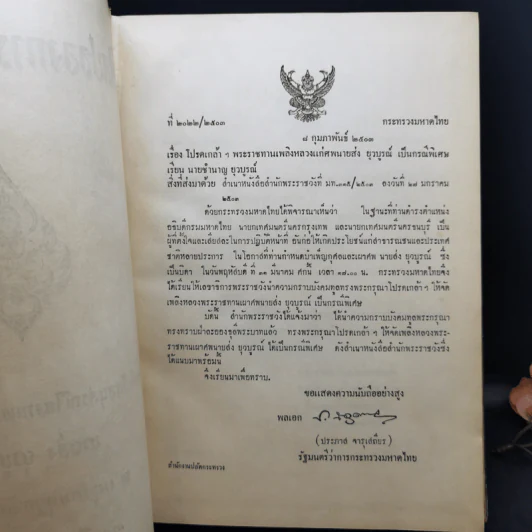 ที่ ๒๐๒๒/๒๕๐๓
กระทรวงมหาดไทย
๘ กุมภาพันธ์ ๒๕๐๓
เรื่อง โปรดเกล้า ฯ พระราชทานเพลิงหลวงแก่ศพนายส่ง ยุวบูรณ์ เป็นกรณีพิเศษ
เรียน นายชำนาญ ยุวบูรณ์
สิ่งที่ส่งมาด้วย สำเนาหนังสือสำนักพระราชวังที่ มท. /๒๕๐๓ ลงวันที่ ๒๗ มกราคม
๒๕๐๓
ด้วยกระทรวงมหาดไทยได้พิจารณาเห็นว่า ในฐานะที่ท่านดำรงตำแหน่ง
อธิบดีกรมมหาดไทย นายกเทศมนตรีนครกรุงเทพ และนายกเทศมนตรีนครธนบุรี เป็น
ผู้ที่ตั้งใจและเสียสละในการปฏิบัติหน้าที่ อันก่อให้เกิดประโยชน์แก่สาธารณชนและประเทศ
ชาติหลายประการ ในโอกาสที่ท่านกำหนดบำเพ็ญกุศลและเผาศพ นายส่ง ยุวบูรณ์ ซึ่ง
เป็นบิดา ในวันพฤหัสบดี ที่ ๑๑ มีนาคม ศกนี้ เวลา ๑๗.๐๐ น. กระทรวงมหาดไทยจึง
ได้เรียนให้เลขาธิการพระราชวังนำความกราบบังคมทูลทรงพระกรุณาโปรดเกล้า ฯ ให้จัด
เพลิงหลวงพระราชทานเผาศพนายส่ง ยุวบูรณ์ เป็นกรณีพิเศษ
บัดนี้ สำนักพระราชวังได้แจ้งมาว่า ได้นำความกราบบังคมทูลพระกรุณา
ทรงทราบฝ่าละอองธุลีพระบาทแล้ว ทรงพระกรุณาโปรดเกล้า ฯ ให้จัดเพลิงหลวงพระ-
ราชทานเผาศพนายส่ง ยุวบูรณ์ ได้เป็นกรณีพิเศษ ดังสำเนาหนังสือสำนักพระราชวังซึ่ง
ได้แนบมาพร้อมนี้
จึงเรียนมาเพื่อทราบ.
ขอแสดงความนับถืออย่างสูง
พลเอก
(ประภาส จารุเสถียร)
รัฐมนตรีว่าการกระทรวงมหาดไทย
สำนักงานปลัดกระทรวง